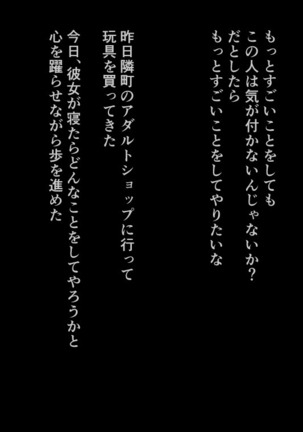 もっとすごいことをしても
この人は気が付かないんじゃないか？
だとしたら
もっとすごいことをしてやりたいな
昨日隣町のアダルトショップに行って
玩具を買ってきた
今日、彼女が寝たらどんなことをしてやろうかと
心を躍らせながら歩を進めた